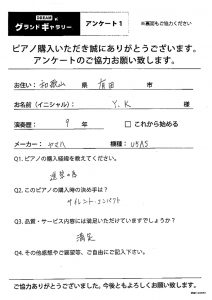 グランドギャラリー
アンケート1
※裏面もご協力ください
ピアノ購入いただき誠にありがとうございます。
アンケートのご協力お願い致します。
お住い： 和歌山 県 有田 市
お名前（イニシャル）： Y.K 様
演奏歴： 9 年 □これから始める
メーカー： ヤマハ 機種： U5AS
Q1. ピアノの購入経緯を教えてください。
Q2. このピアノの購入時の決め手は？
サイレント、コンパクト
Q3. 品質・サービス内容には満足いただけていますでしょうか？
満足
Q4. その他感想やご要望等、ご自由にご記入下さい。
ご協力ありがとうございました。今後ともよろしくお願い致します。